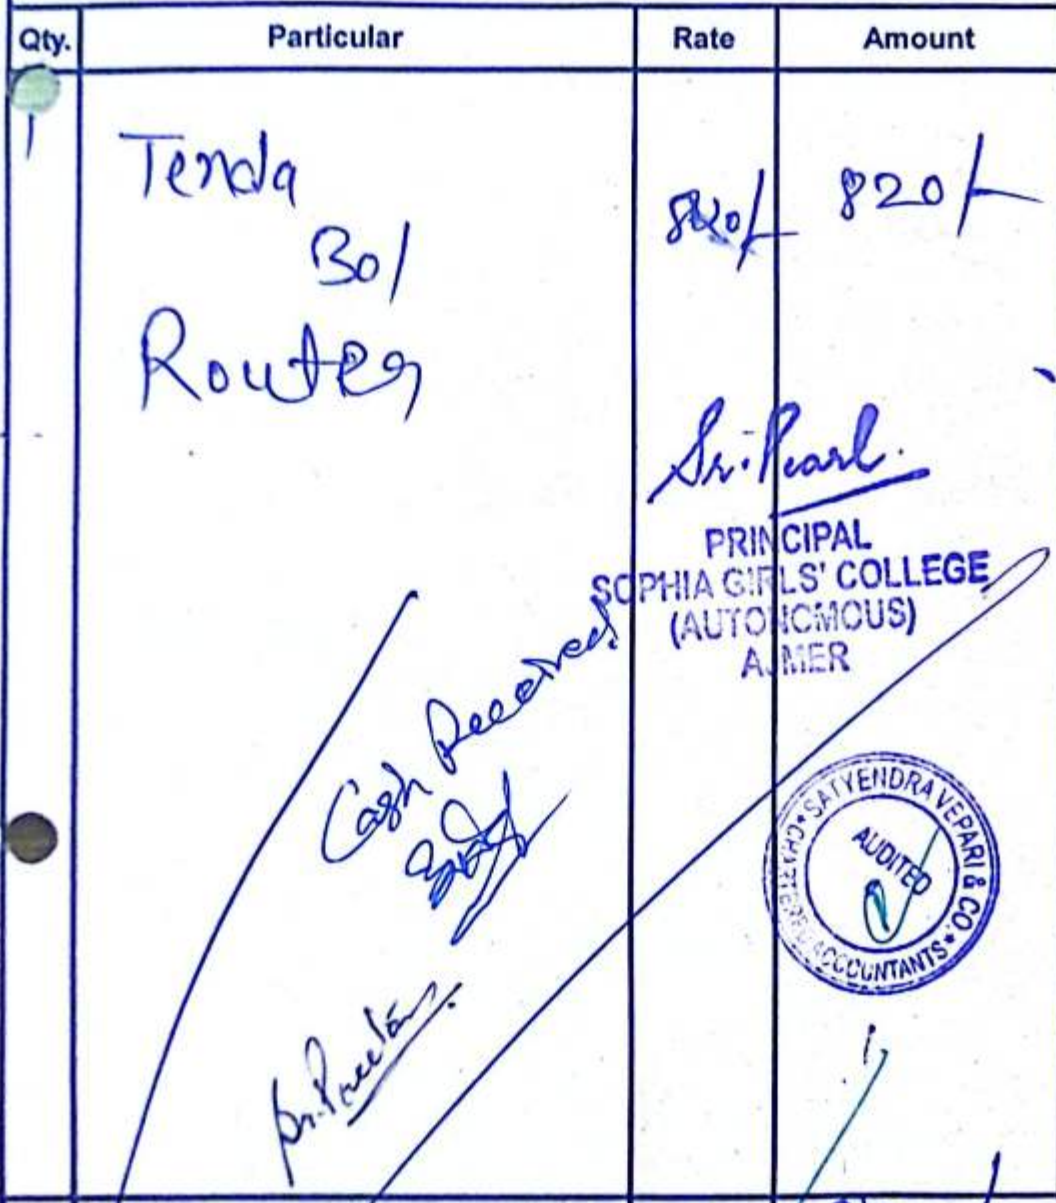 Qty. Particular Rate Amount
1 Tenda 820/- 820/-
301
Router
Sr. Pearl.
PRINCIPAL
SOPHIA GIRLS' COLLEGE
(AUTONOMOUS)
AJMER
Cash Received
SATYENDRA VEPARI & CO.
CHARTERED ACCOUNTANTS
AUDITED